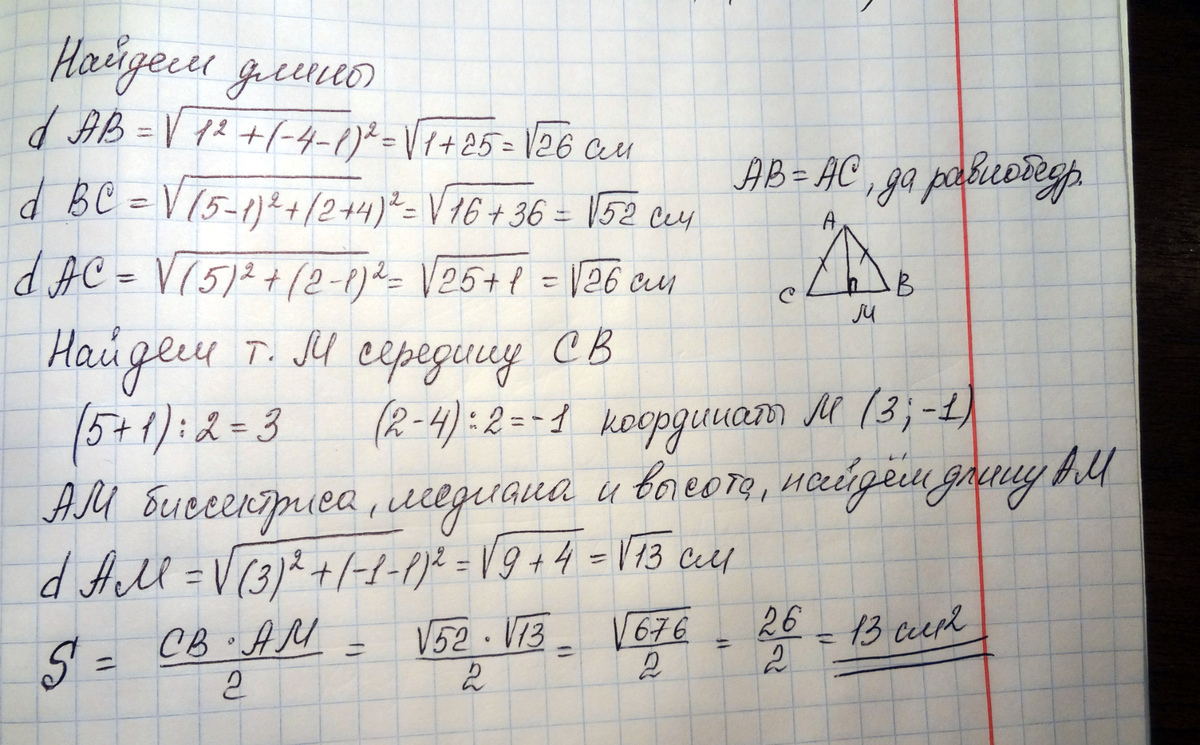 Найдем длины
d AB = √(1² + (-4-1)²) = √(1+25) = √26 см
d BC = √((5-1)² + (2+4)²) = √(16+36) = √52 см
AB = AC, да равнобедр.
d AC = √((5)² + (2-1)²) = √(25+1) = √26 см
A
C B
M
Найдем т. M середину CB
(5+1) : 2 = 3 (2-4) : 2 = -1 координаты M (3; -1)
AM биссектриса, медиана и высота, найдём длину AM
d AM = √((3)² + (-1-1)²) = √(9+4) = √13 см
S = CB · AM / 2 = √52 · √13 / 2 = √676 / 2 = 26 / 2 = 13 см²